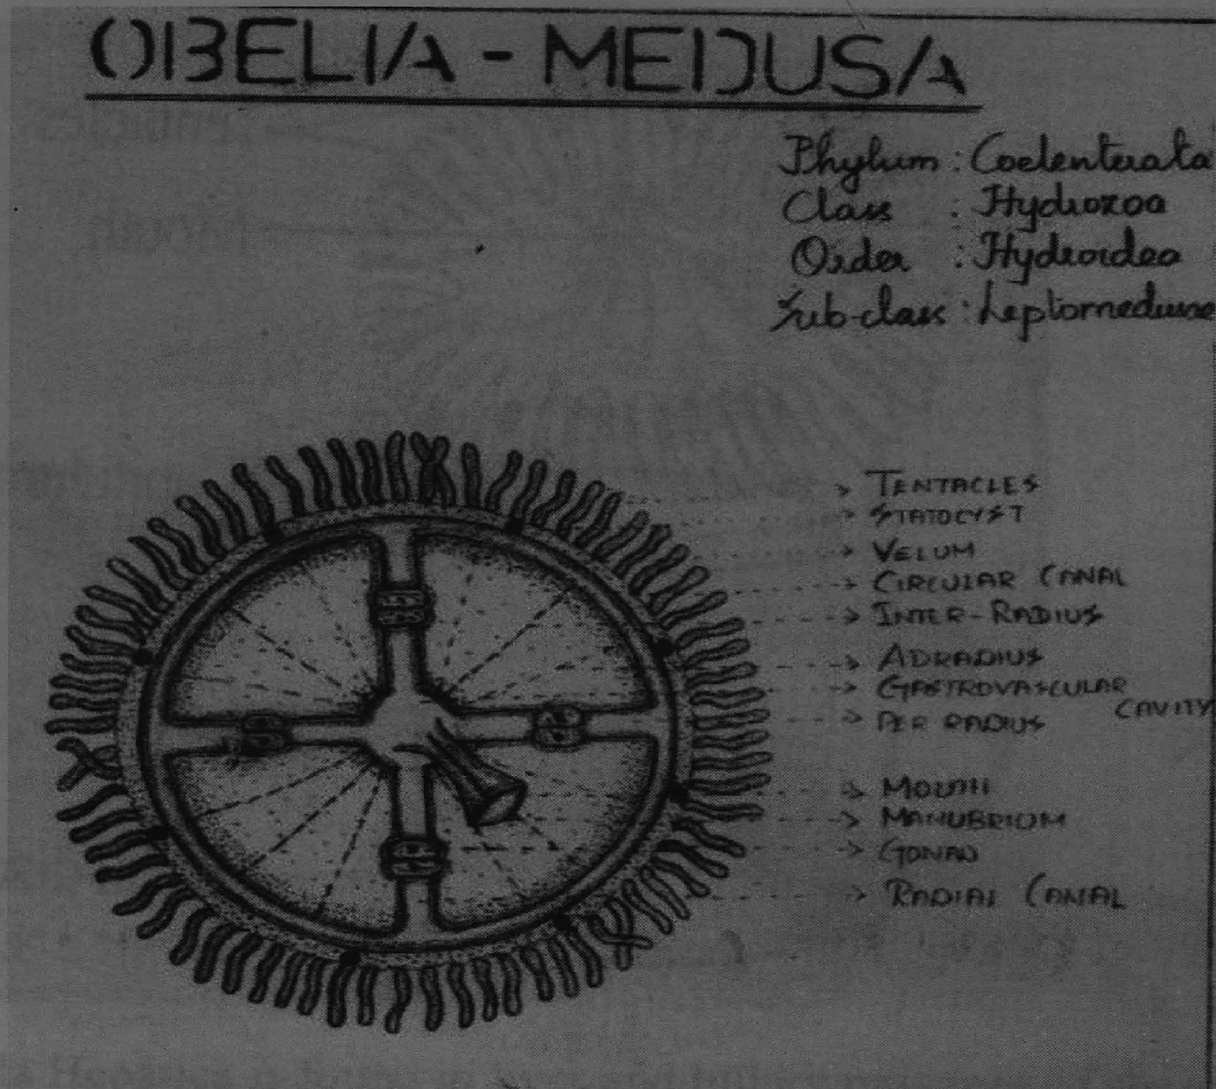 OBELIA - MEDUSA
Phylum : Coelenterata
Class : Hydrozoa
Order : Hydroidea
Sub-class : Leptomedusae
TENTACLES
STATOCYST
VELUM
CIRCULAR CANAL
INTER-RADIUS
ADRADIUS
GASTROVASCULAR
CAVITY
PER RADIUS
MOUTH
MANUBRIUM
GONAD
RADIAL CANAL